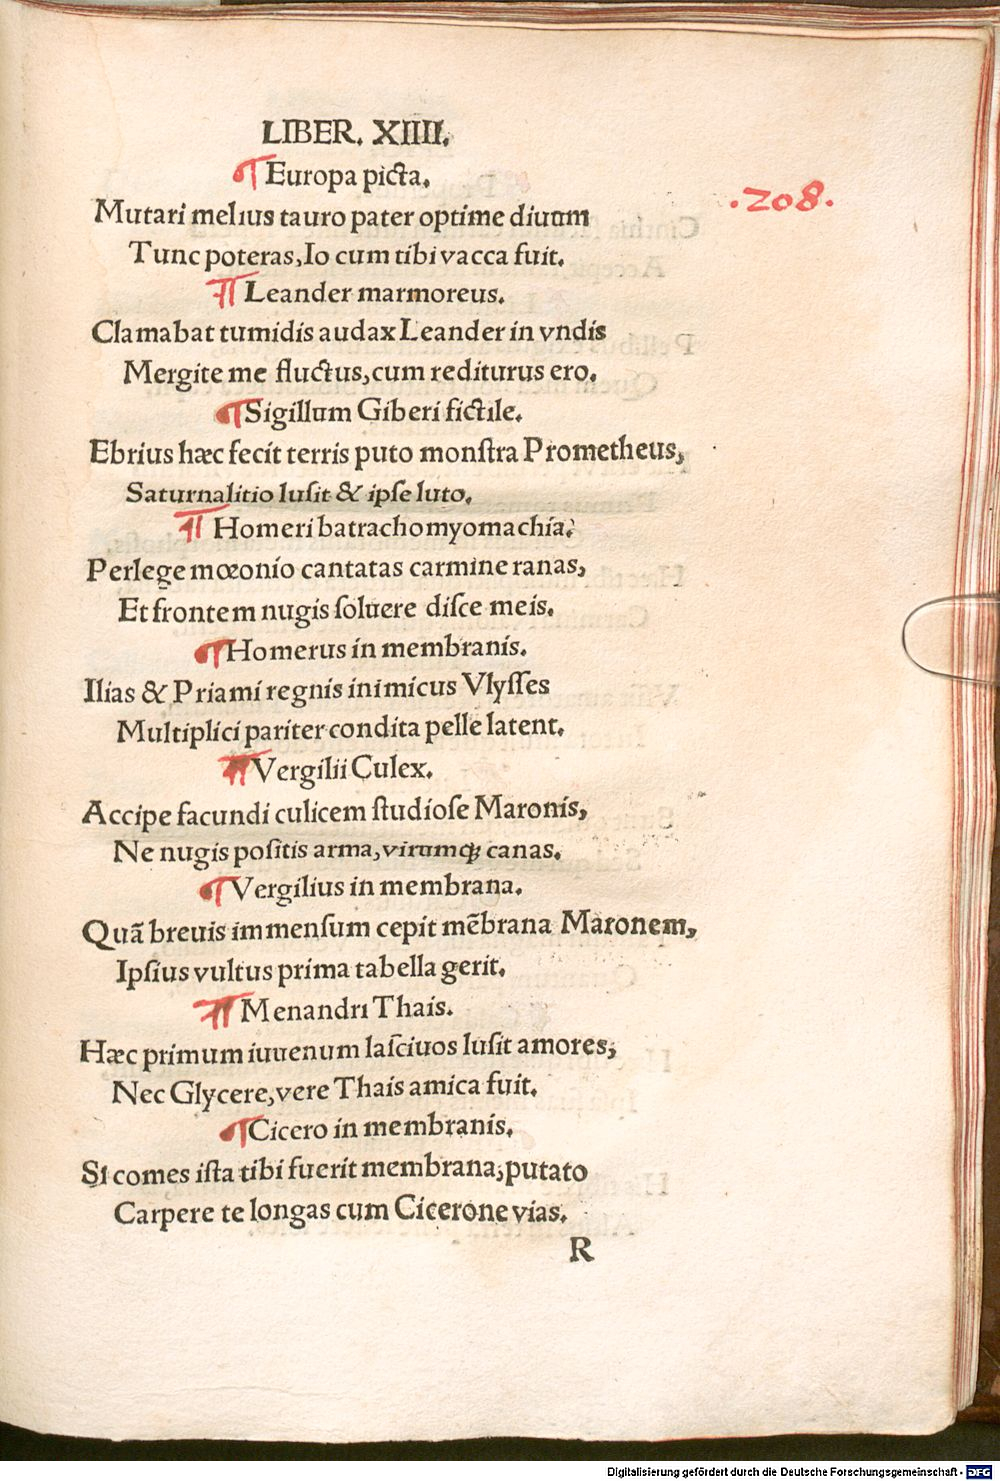 LIBER. XIIII.
¶ Europa picta.
.208.
Mutari melius tauro pater optime diuum
Tunc poteras, Io cum tibi vacca fuit.
¶ Leander marmoreus.
Clamabat tumidis audax Leander in vndis
Mergite me fluctus, cum rediturus ero.
¶ Sigillum Giberi fictile.
Ebrius hæc fecit terris puto monſtra Prometheus,
Saturnalitio luſit & ipſe luto.
¶ Homeri batrachomyomachia.
Perlege mœonio cantatas carmine ranas,
Et frontem nugis ſoluere diſce meis.
¶ Homerus in membranis.
Ilias & Priami regnis inimicus Vlyſſes
Multiplici pariter condita pelle latent.
¶ Vergilii Culex.
Accipe facundi culicem ſtudioſe Maronis,
Ne nugis poſitis arma, virumqꝫ canas.
¶ Vergilius in membrana.
Quã breuis immenſum cepit mẽbrana Maronem,
Ipſius vultus prima tabella gerit.
¶ Menandri Thais.
Hæc primum iuuenum laſciuos luſit amores,
Nec Glycere, vere Thais amica fuit.
¶ Cicero in membranis.
Si comes iſta tibi fuerit membrana, putato
Carpere te longas cum Cicerone vias.
R
Digitalisierung gefördert durch die Deutsche Forschungsgemeinschaft - DFG